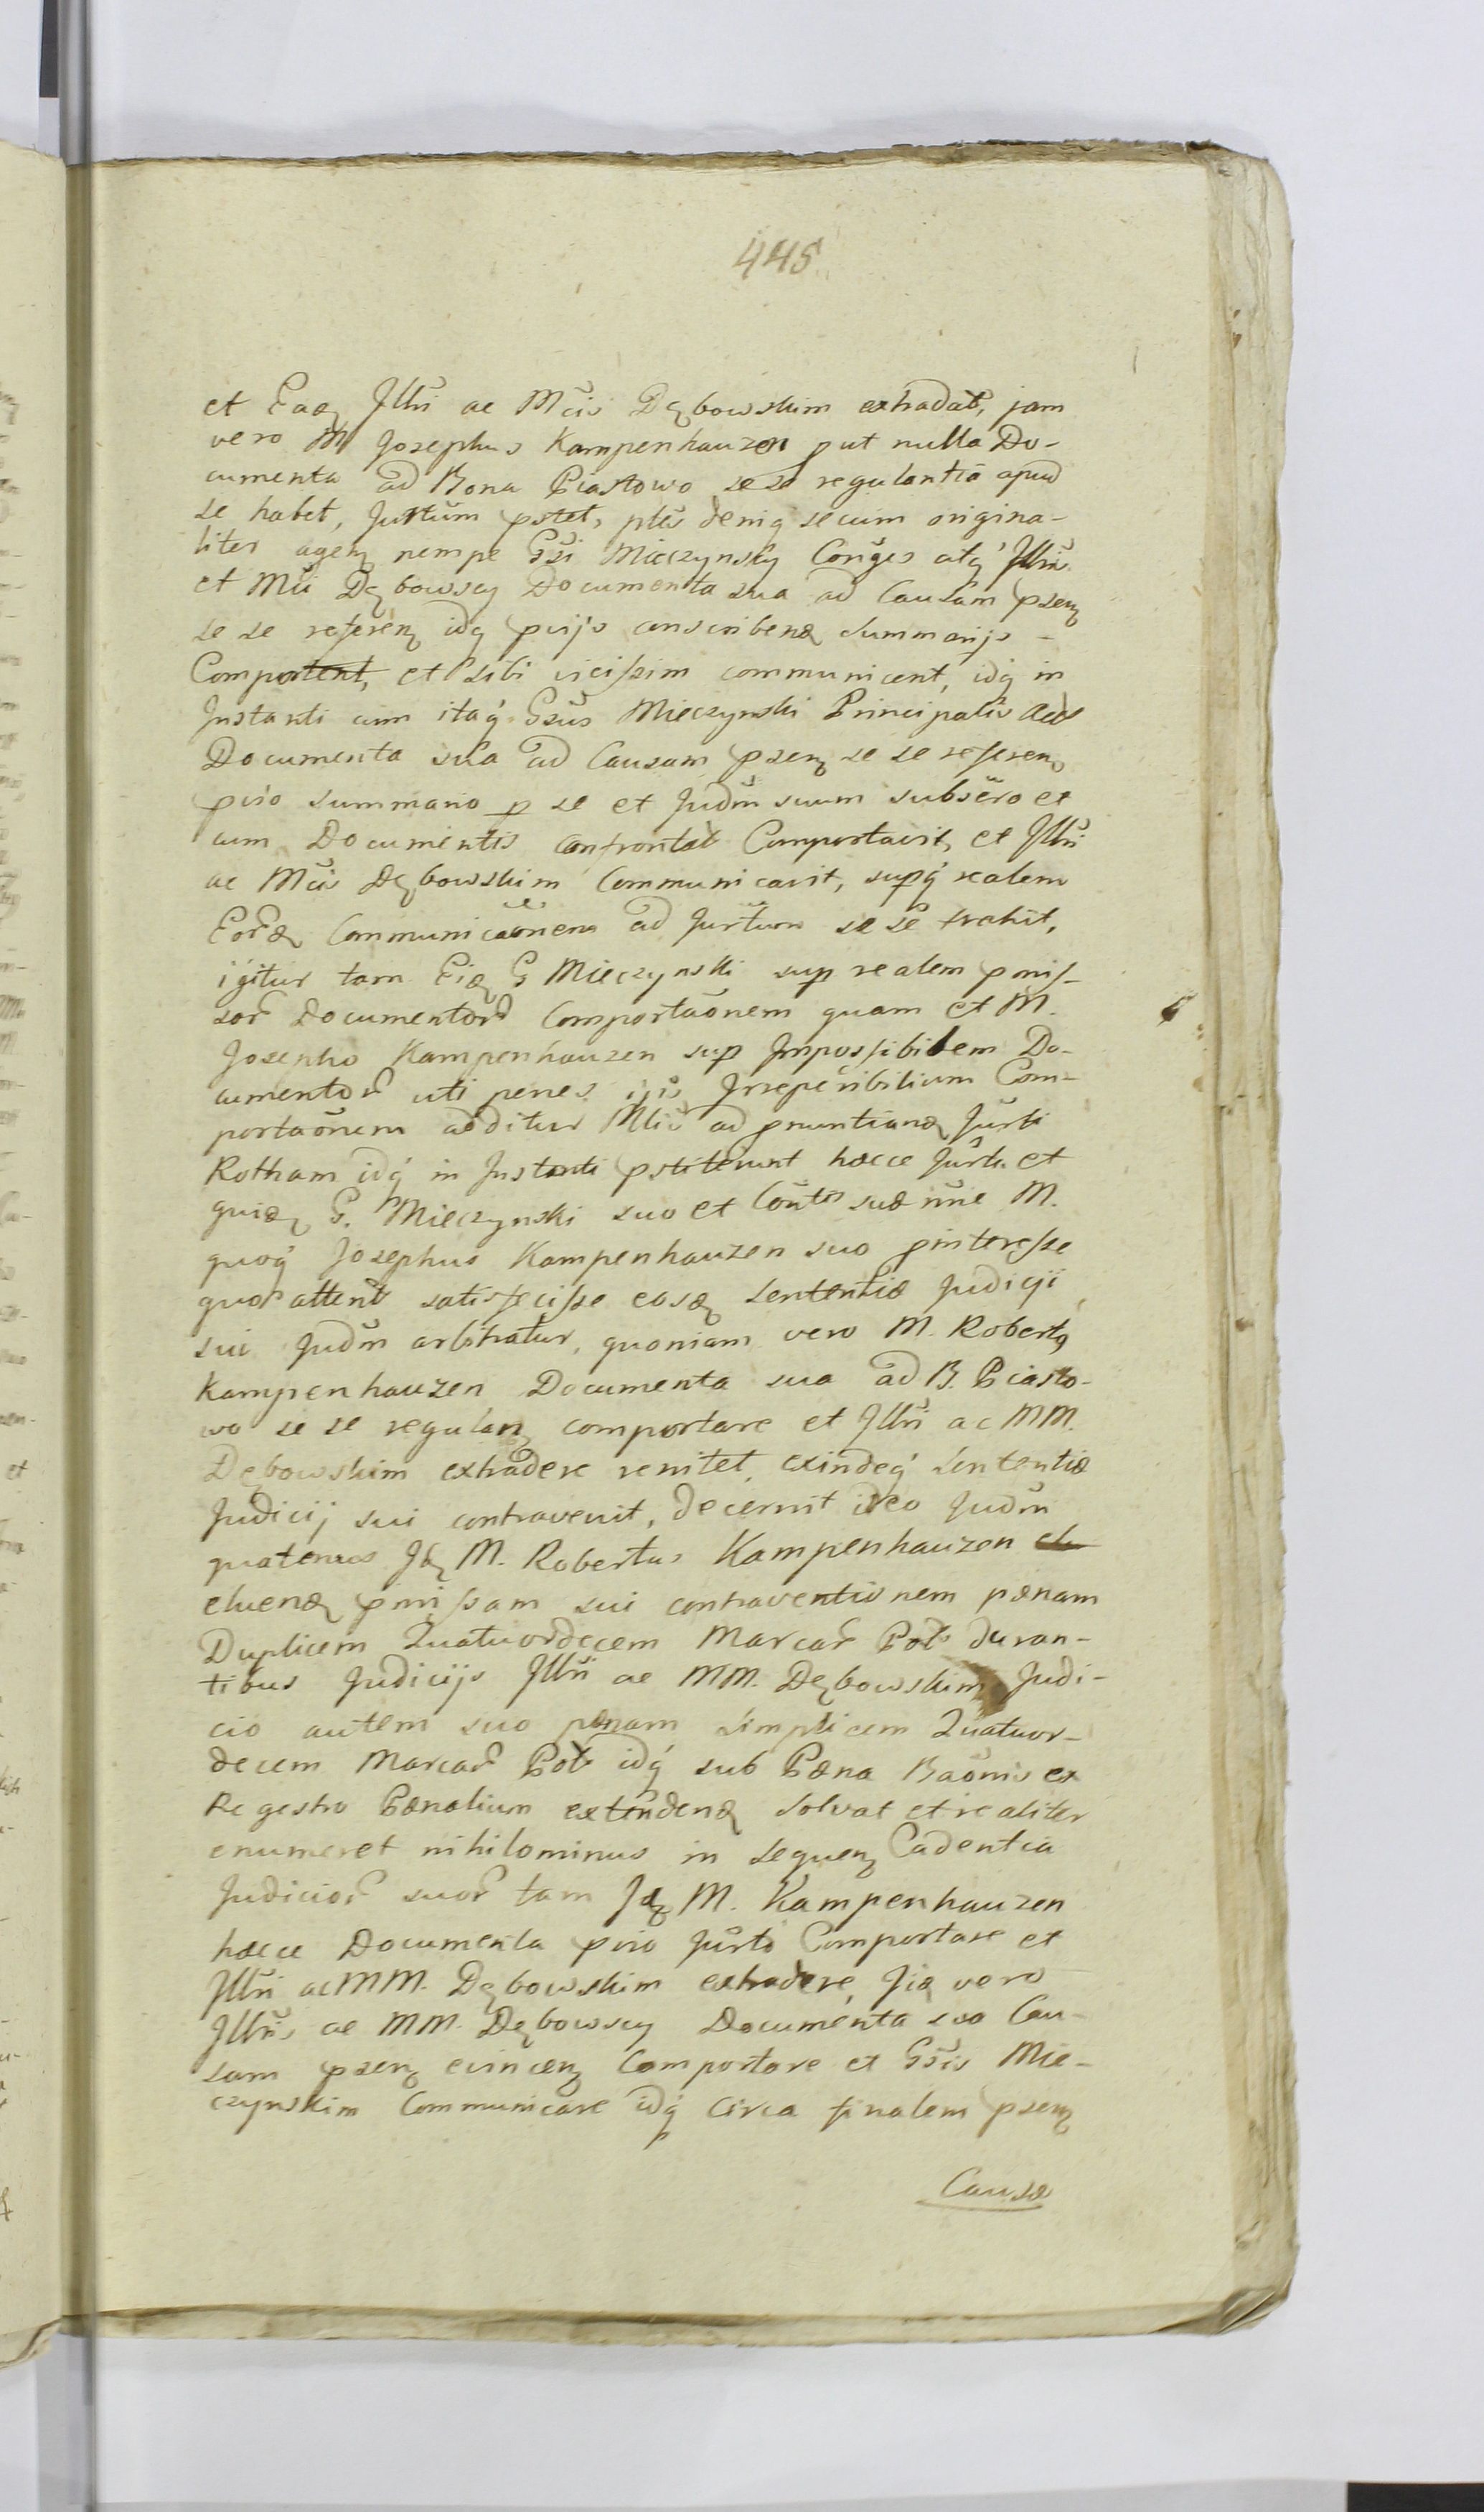 445
et Eaq Jllri ac Mcis Dębowskim extradat, jam
vero M Josephus Kampenhauzen put nulla Do-
cumenta ad Bona Piastowo se se regulantia apud
se habet, Jurtum pstet, ptes deniq secum origina-
liter agenz nempe Gsi Mieczynscy Conges atq Jllris
et Mci Dębowscy Documenta sua ad Causam psenz
se se referenz idq pvijs conscribend summarijs -
Comportent, et sibi vicissim communicent, idq in
Instanti cum itaq Gsus Mieczynski Principalis
Documenta sua ad Causam psenz se se referen
pvio summario p se et Judm suum subscro et
cum Documentis confrontat Comportavit, et Jllri
ac Mcis Dębowskim Communicavit, supq realem
Eord Communicaonem ad Jurtum se se trahit,
igitur tam Eid G Mieczynski sup realem pmis-
sor Documentor Comportaonem quam et M.
Josepho Kampenhauzen sup Impossibilem Do-
cumentor uti penes ijs Irreperibilium Com-
portaonem additur Mlis ad pnuntiand Jurti
Rotham idq in Instanti pstiterunt hæcce Jurta et
quid G. Mieczynski suo et Contis suæ nne M.
quoq Josephus Kampenhauzen suo pinteresse
quo attent satisfecisse easq Sententiæ Judicij
sui Judm arbitratur, quoniam vero M. Robertq
Kampenhauzen Documenta sua ad B. Piasto-
wo se se regulanz comportare et Jllri ac MM.
Dębowskim extradere renitet, exindeq Sententiæ
Judicij sui contravenit, decernit ideo Judm
quatenus Id M. Robertus Kampenhauzen elu
eluend pmissam sui contraventionem pænam
Duplicem Quatuordecem Marcar Pol duran-
tibus Judicijs Jllri ac MM. Dębowskim, Judi-
cio autem suo pænam simplicem Quatuor-
decem Marcar Pol idq sub Pæna Baonis ex
Regestro Pænalium extendend solvat et realiter
enumeret nihilominus in sequenz Cadentia
Judicior suor tam Id M. Kampenhauzen
hæcce Documenta pvio Jurto Comportare et
Jllri ac MM. Dębowskim extradere, Jid vero
Jllris ac MM. Dębowscy Documenta sua Cau-
sam psenz evincenz Comportare et Gsis Mie-
czynskim Communicare idq circa finalem psenz
Causæ